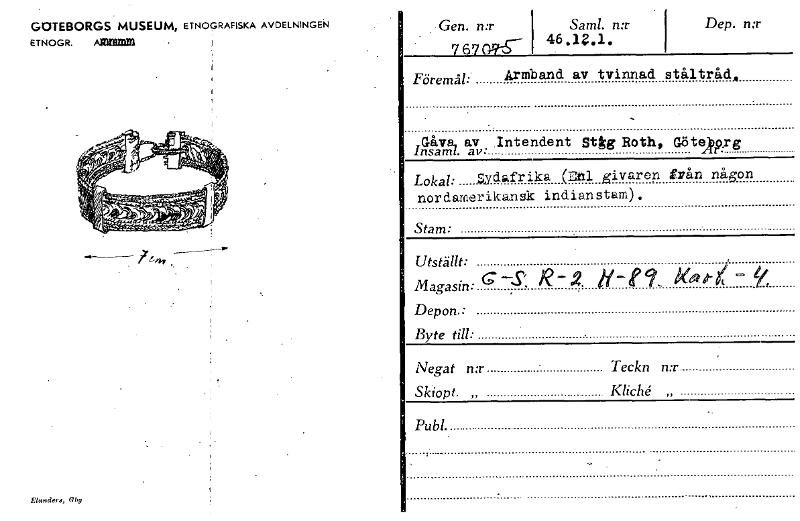 GÖTEBORGS MUSEUM, ETNOGRAFISKA AVDELNINGEN
ETNOGR.
7 cm.
Elanders, Gbg
Gen. n:r
767075
Saml. n:r
46.12.1.
Dep. n:r
Föremål: Armband av tvinnad ståltråd.
Gåva av Intendent Stig Roth, Göteborg
Insaml. av: År
Lokal: Sydafrika (Enl givaren från någon
nordamerikansk indianstam).
Stam:
Utställt:
Magasin: G-S. R-2 H-89. Kart-4.
Depon.:
Byte till:
Negat n:r Teckn n:r
Skiopt. „ Kliché „
Publ.